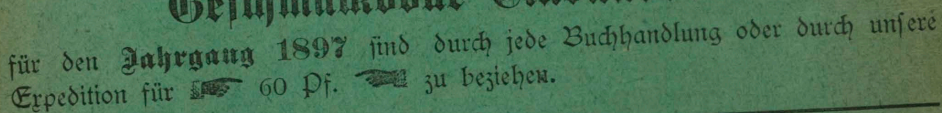 für den Jahrgang 1897 sind durch jede Buchhandlung oder durch unsere
Expedition für 60 Pf. zu beziehen.